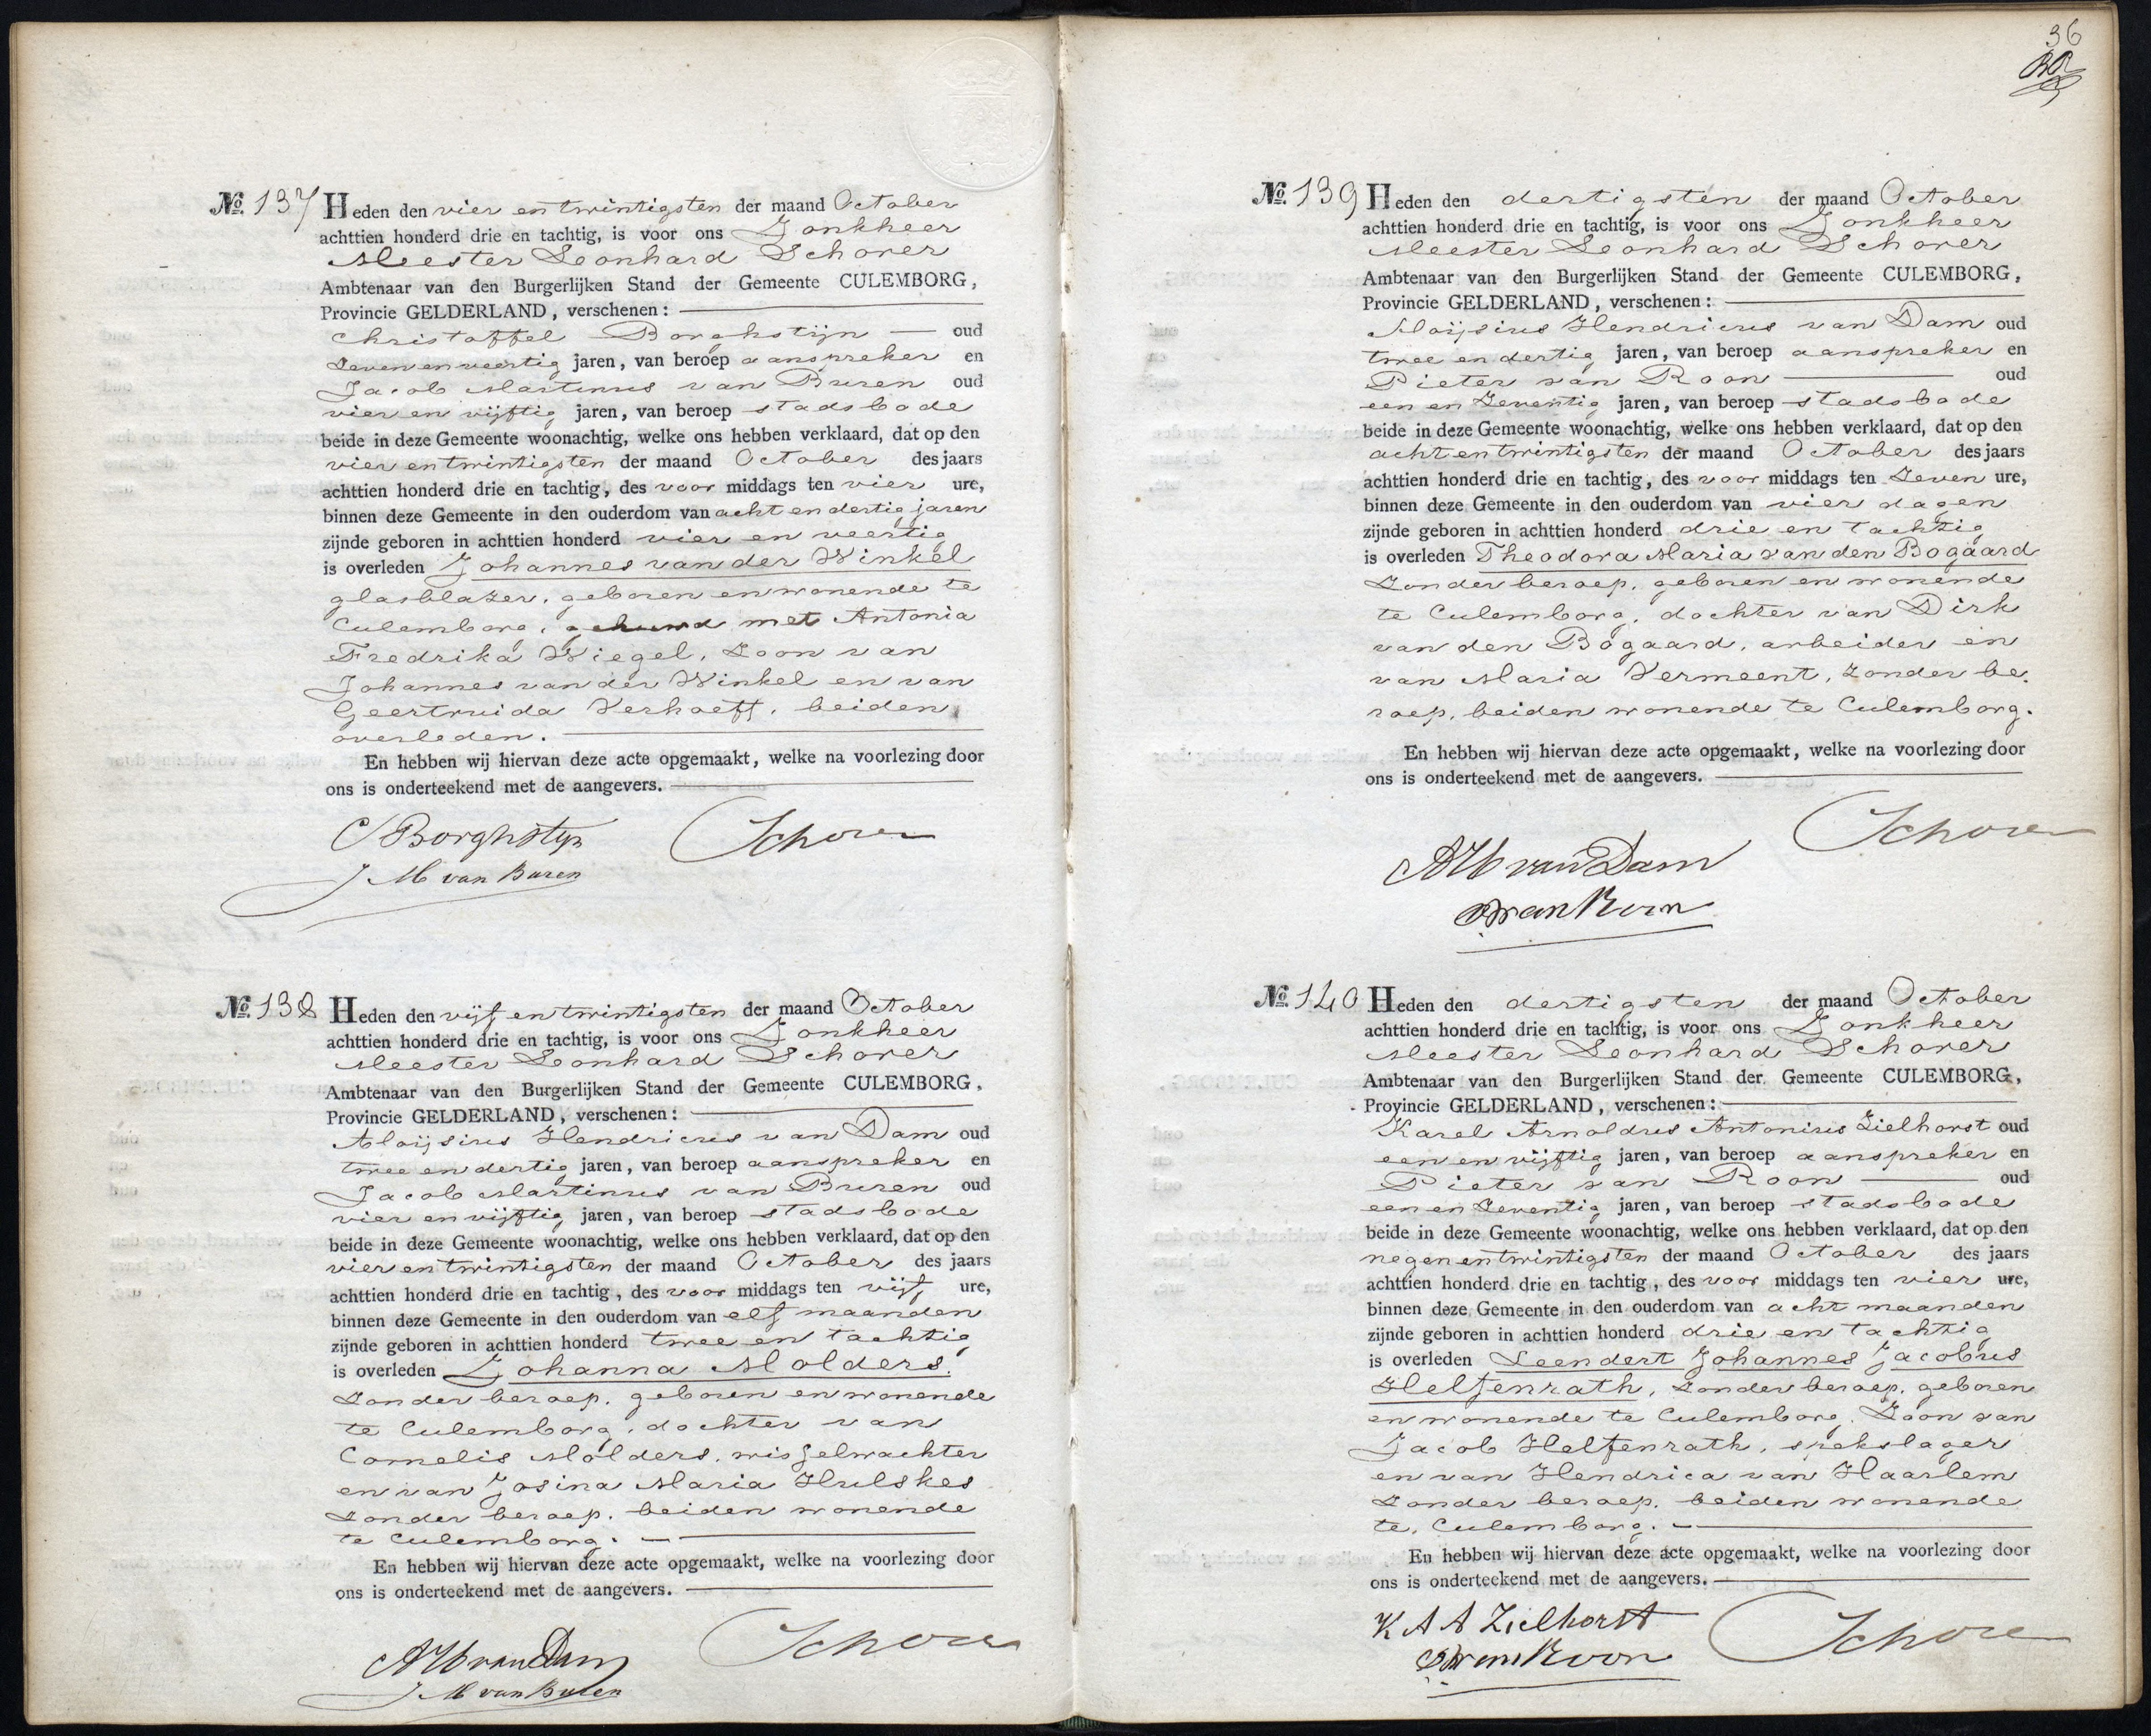 No. 137 Heden den vier en twintigsten der maand October
achttien honderd drie en tachtig, is voor ons Jonkheer
Meester Leonhard Schorer
Ambtenaar van den Burgerlijken Stand der Gemeente CULEMBORG,
Provincie GELDERLAND, verschenen:
Christoffel Borghstijn oud
zeven en veertig jaren, van beroep aanspreker en
Jacob Martinus van Buren oud
vier en vijftig jaren, van beroep stadsbode
beide in deze Gemeente woonachtig, welke ons hebben verklaard, dat op den
vier en twintigsten der maand October des jaars
achttien honderd drie en tachtig, des voor middags ten vier ure,
binnen deze Gemeente in den ouderdom van acht en dertig jaren
zijnde geboren in achttien honderd vier en veertig
is overleden Johannes van der Winkel
glasblazer, geboren en wonende te
Culemborg, gehuwd met Antonia
Fredrika Wiegel, zoon van
Johannes van der Winkel en van
Geertruida Verhoeff, beiden
overleden.
En hebben wij hiervan deze acte opgemaakt, welke na voorlezing door
ons is onderteekend met de aangevers.
C Borghstyn Schorer
J M van Buren
No. 138 Heden den vijf en twintigsten der maand October
achttien honderd drie en tachtig, is voor ons Jonkheer
Meester Leonhard Schorer
Ambtenaar van den Burgerlijken Stand der Gemeente CULEMBORG,
Provincie GELDERLAND, verschenen:
Aloijsius Hendricus van Dam oud
twee en dertig jaren, van beroep aanspreker en
Jacob Martinus van Buren oud
vier en vijftig jaren, van beroep stadsbode
beide in deze Gemeente woonachtig, welke ons hebben verklaard, dat op den
vier en twintigsten der maand October des jaars
achttien honderd drie en tachtig, des voor middags ten vijf ure,
binnen deze Gemeente in den ouderdom van elf maanden
zijnde geboren in achttien honderd twee en tachtig
is overleden Johanna Molders.
zonder beroep, geboren en wonende
te Culemborg, dochter van
Cornelis Molders, wisselwachter
en van Josina Maria Hulskes
zonder beroep, beiden wonende
te Culemborg.
En hebben wij hiervan deze acte opgemaakt, welke na voorlezing door
ons is onderteekend met de aangevers.
A H van Dam Schorer
J M van Buren
36
No. 139 Heden den dertigsten der maand October
achttien honderd drie en tachtig, is voor ons Jonkheer
Meester Leonhard Schorer
Ambtenaar van den Burgerlijken Stand der Gemeente CULEMBORG,
Provincie GELDERLAND, verschenen:
Aloijsius Hendricus van Dam oud
twee en dertig jaren, van beroep aanspreker en
Pieter van Roon oud
een en zeventig jaren, van beroep stadsbode
beide in deze Gemeente woonachtig, welke ons hebben verklaard, dat op den
acht en twintigsten der maand October des jaars
achttien honderd drie en tachtig, des voor middags ten zeven ure,
binnen deze Gemeente in den ouderdom van vier dagen
zijnde geboren in achttien honderd drie en tachtig
is overleden Theodora Maria van den Bogaard
zonder beroep, geboren en wonende
te Culemborg, dochter van Dirk
van den Bogaard, arbeider en
van Maria Vermeent, zonder be.
roep, beiden wonende te Culemborg.
En hebben wij hiervan deze acte opgemaakt, welke na voorlezing door
ons is onderteekend met de aangevers.
Schorer
A H van Dam
P van Roon
No. 140 Heden den dertigsten der maand October
achttien honderd drie en tachtig, is voor ons Jonkheer
Meester Leonhard Schorer
Ambtenaar van den Burgerlijken Stand der Gemeente CULEMBORG,
Provincie GELDERLAND, verschenen:
Karel Arnoldus Antonius Zielhorst oud
een en vijftig jaren, van beroep aanspreker en
Pieter van Roon oud
een en zeventig jaren, van beroep stadsbode
beide in deze Gemeente woonachtig, welke ons hebben verklaard, dat op den
negen en twintigsten der maand October des jaars
achttien honderd drie en tachtig, des voor middags ten vier ure,
binnen deze Gemeente in den ouderdom van acht maanden
zijnde geboren in achttien honderd drie en tachtig
is overleden Leendert Johannes Jacobus
Helsenrath, zonder beroep, geboren
en wonende te Culemborg, Zoon van
Jacob Helsenrath, spekslager
en van Hendrica van Haarlem
zonder beroep, beiden wonende
te Culemborg.
En hebben wij hiervan deze acte opgemaakt, welke na voorlezing door
ons is onderteekend met de aangevers.
K A A Zielhorst Schorer
P van Roon